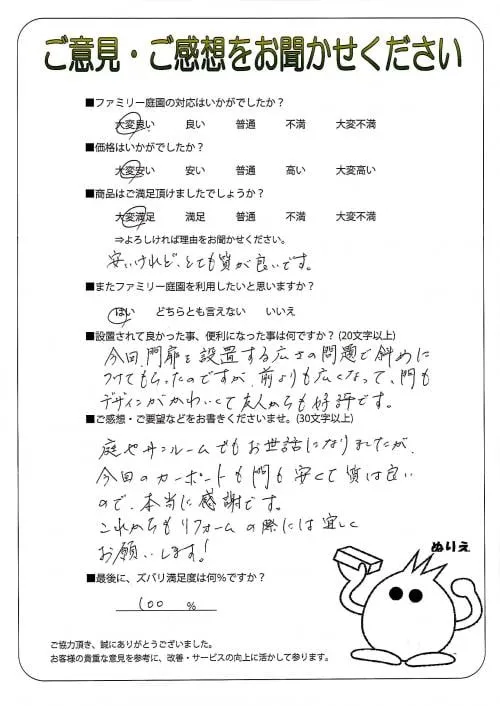 ご意見・ご感想をお聞かせください
■ファミリー庭園の対応はいかがでしたか？
大変良い 良い 普通 不満 大変不満
■価格はいかがでしたか？
大変安い 安い 普通 高い 大変高い
■商品はご満足頂けましたでしょうか？
大変満足 満足 普通 不満 大変不満
⇒よろしければ理由をお聞かせください。
安いけれど、とても質が良いです。
■またファミリー庭園を利用したいと思いますか？
はい どちらとも言えない いいえ
■設置されて良かった事、便利になった事は何ですか？(20文字以上)
今回、門扉を設置する広さの問題で斜めに
つけてもらったのですが、前よりも広くなって、門も
デザインがかわいくて友人からも好評です。
■ご感想・ご要望などをお書きくださいませ。(30文字以上)
庭やサンルームでもお世話になりましたが、
今回のカーポートも門も安くて質は良い
ので、本当に感謝です。
これからもリフォームの際には宜しく
お願いします!
ぬりえ
■最後に、ズバリ満足度は何%ですか？
100 %
ご協力頂き、誠にありがとうございました。
お客様の貴重な意見を参考に、改善・サービスの向上に活かして参ります。